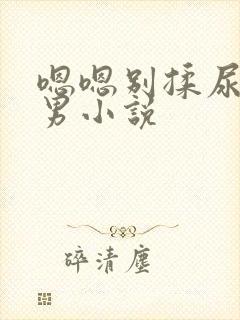 嗯嗯别揉尿
男小説
碎清塵